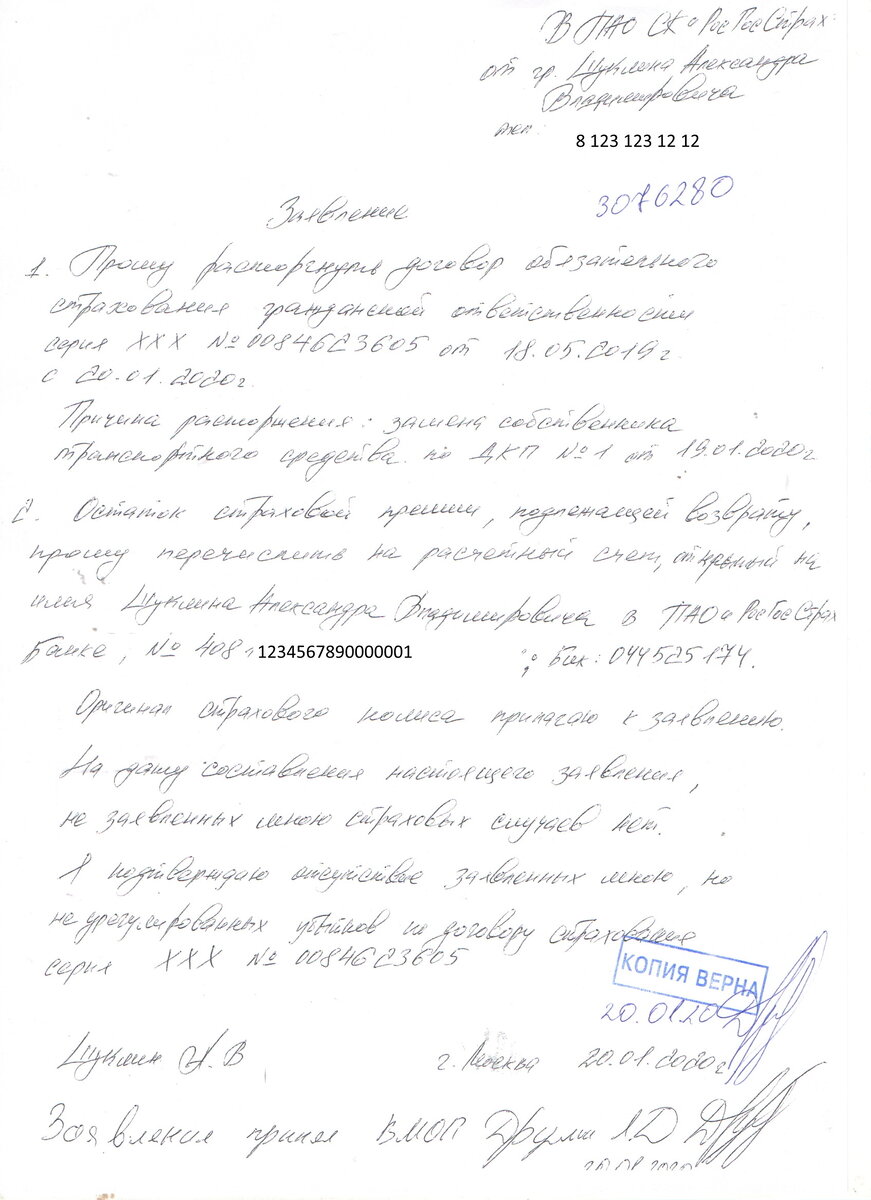 В ПАО СК «РосГосСтрах
от гр. Шуклина Александра
Владимировича
тел:
8 123 123 12 12
3076280
Заявление
1. Прошу расторгнуть договор обязательного
страхования гражданской ответственности
серия ХХХ № 0084623605 от 18.05.2019г.
с 20.01.2020г.
Причина расторжения: замена собственника
транспортного средства по ДКП №1 от 19.01.2020г
2. Остаток страховой премии, подлежащей возврату,
прошу перечислить на расчетный счет, открытый на
имя Шуклина Александра Владимировича в ПАО «РосГосСтрах
Банке, № 408 1234567890000001 ; Бик: 044525174.
Оригинал страхового полиса прилагаю к заявлению.
На дату составления настоящего заявления,
не заявленных мною страховых случаев нет.
Я подтверждаю отсутствие заявленных мною, но
не урегулированных убытков по договору страхования
серия ХХХ № 0084623605
КОПИЯ ВЕРНА
20.01.20
Шуклин А.В г. Москва 20.01.2020г
Заявление принял ВМОП